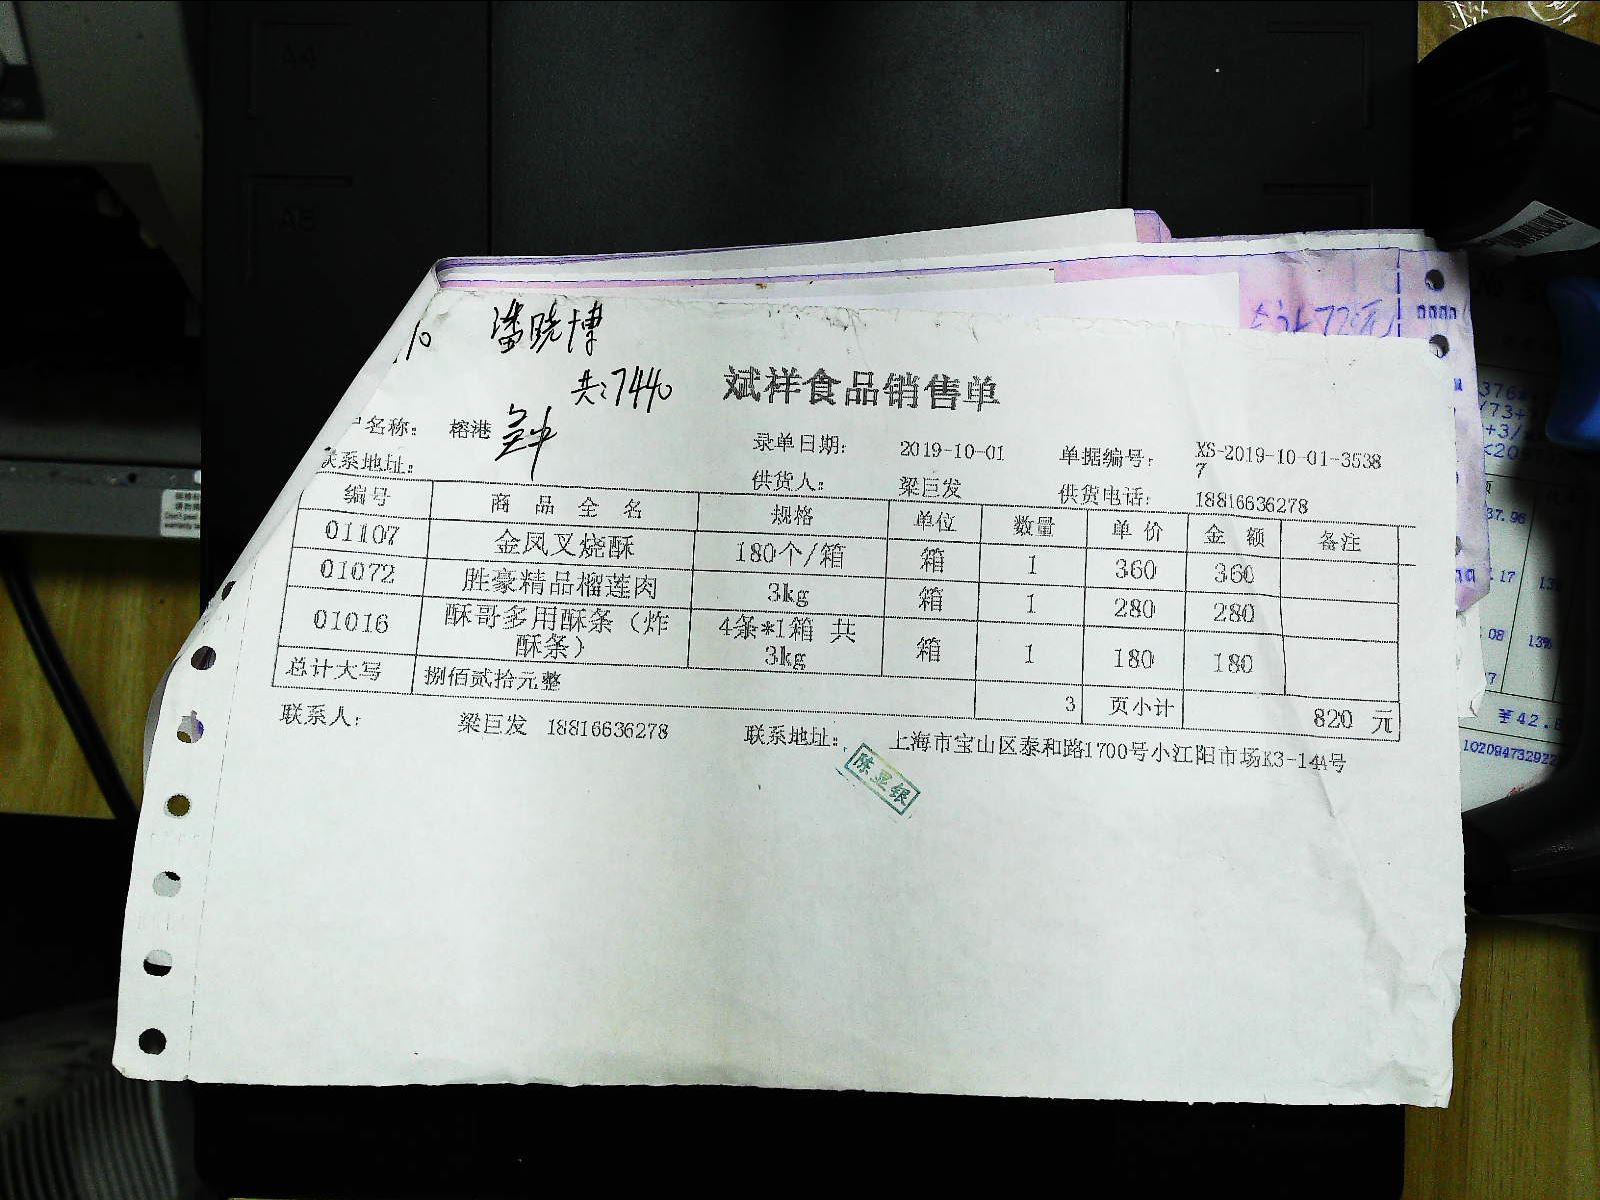 潘晓博
共:7440
斌祥食品销售单
名称: 榕港 录单日期: 2019-10-01 单据编号: XS-2019-10-01-35387
联系地址: 供货人: 梁巨发 供货电话: 18816636278
编号 商品全名 规格 单位 数量 单价 金额 备注
01107 金凤叉烧酥 180个/箱 箱 1 360 360
01072 胜豪精品榴莲肉 3kg 箱 1 280 280
01016 酥哥多用酥条（炸酥条） 4条*1箱 共3kg 箱 1 180 180
总计大写 捌佰贰拾元整 3 页小计 820 元
联系人: 梁巨发 18816636278 联系地址: 上海市宝山区泰和路1700号小江阳市场K3-14A号
陈亚银
A4
A5